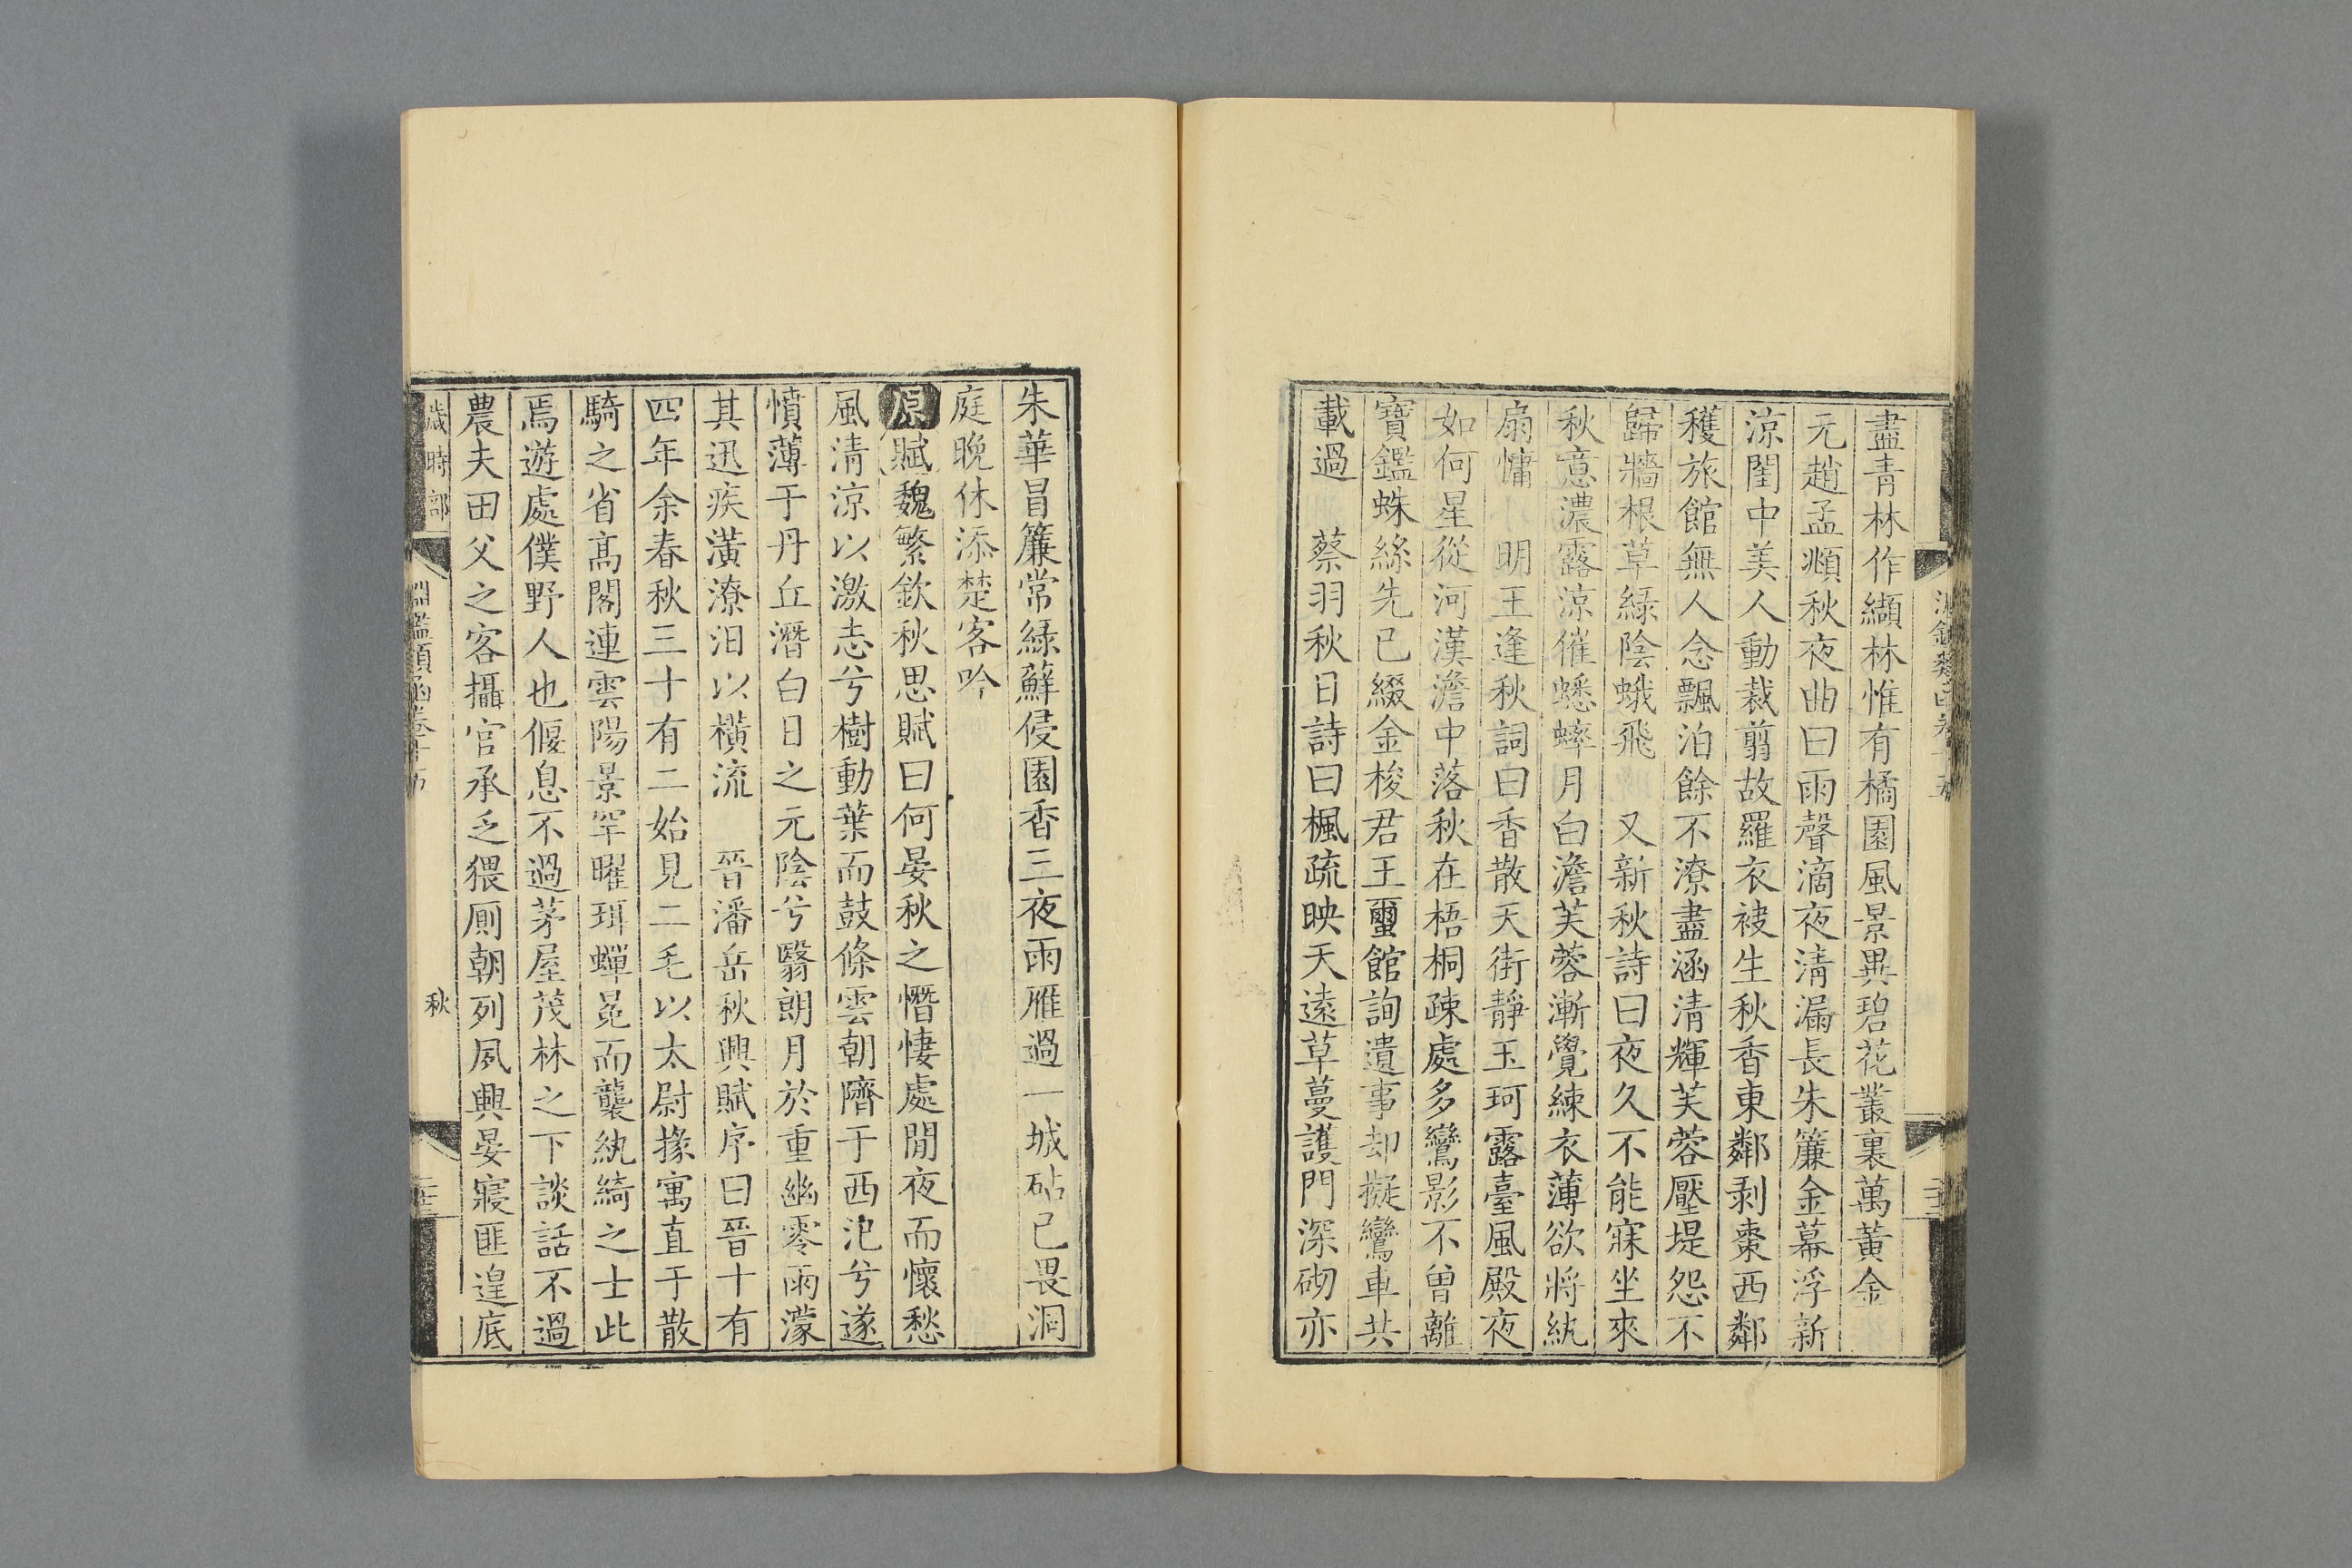 盡青林作纈林惟有橘園風景異碧花叢裏萬黃金
元趙孟頫秋夜曲曰雨聲滴夜清漏長朱簾金幕浮新
涼閨中美人動裁翦故羅衣裓生秋香東鄰剥棗西鄰
穫旅館無人念飄泊餘不潦盡涵清輝芙蓉壓堤怨不
歸牆根草綠陰蛾飛 又新秋詩曰夜久不能寐坐來
秋意濃露涼催蟋蟀月白澹芙蓉漸覺練衣薄欲將紈
扇慵 明王逢秋詞曰香散天街靜玉珂露臺風殿夜
如何星從河漢澹中落秋在梧桐疎處多鸞影不曾離
寶鑑蛛絲先已綴金梭君王璽館詢遺事却擬鸞車共
載過 蔡羽秋日詩曰楓疏映天遠草蔓護門深砌亦
朱華冒簾常綠蘚侵園香三夜雨雁過一城砧已畏洞
庭晚休添楚客吟
原賦魏繁欽秋思賦曰何晏秋之憯悽處閒夜而懷愁
風清涼以激志兮樹動葉而鼓條雲朝隮于西汜兮遂
憤薄于丹丘潛白日之元陰兮翳朗月於重幽零雨濛
其迅疾潢潦汩以橫流 晉潘岳秋興賦序曰晉十有
四年余春秋三十有二始見二毛以太尉掾寓直于散
騎之省高閣連雲陽景罕曜珥蟬冕而襲紈綺之士此
焉遊處僕野人也偃息不過茅屋茂林之下談話不過
農夫田父之客攝官承乏猥厠朝列夙興晏寢匪遑底
歲時部 淵鑑類函卷十五 秋